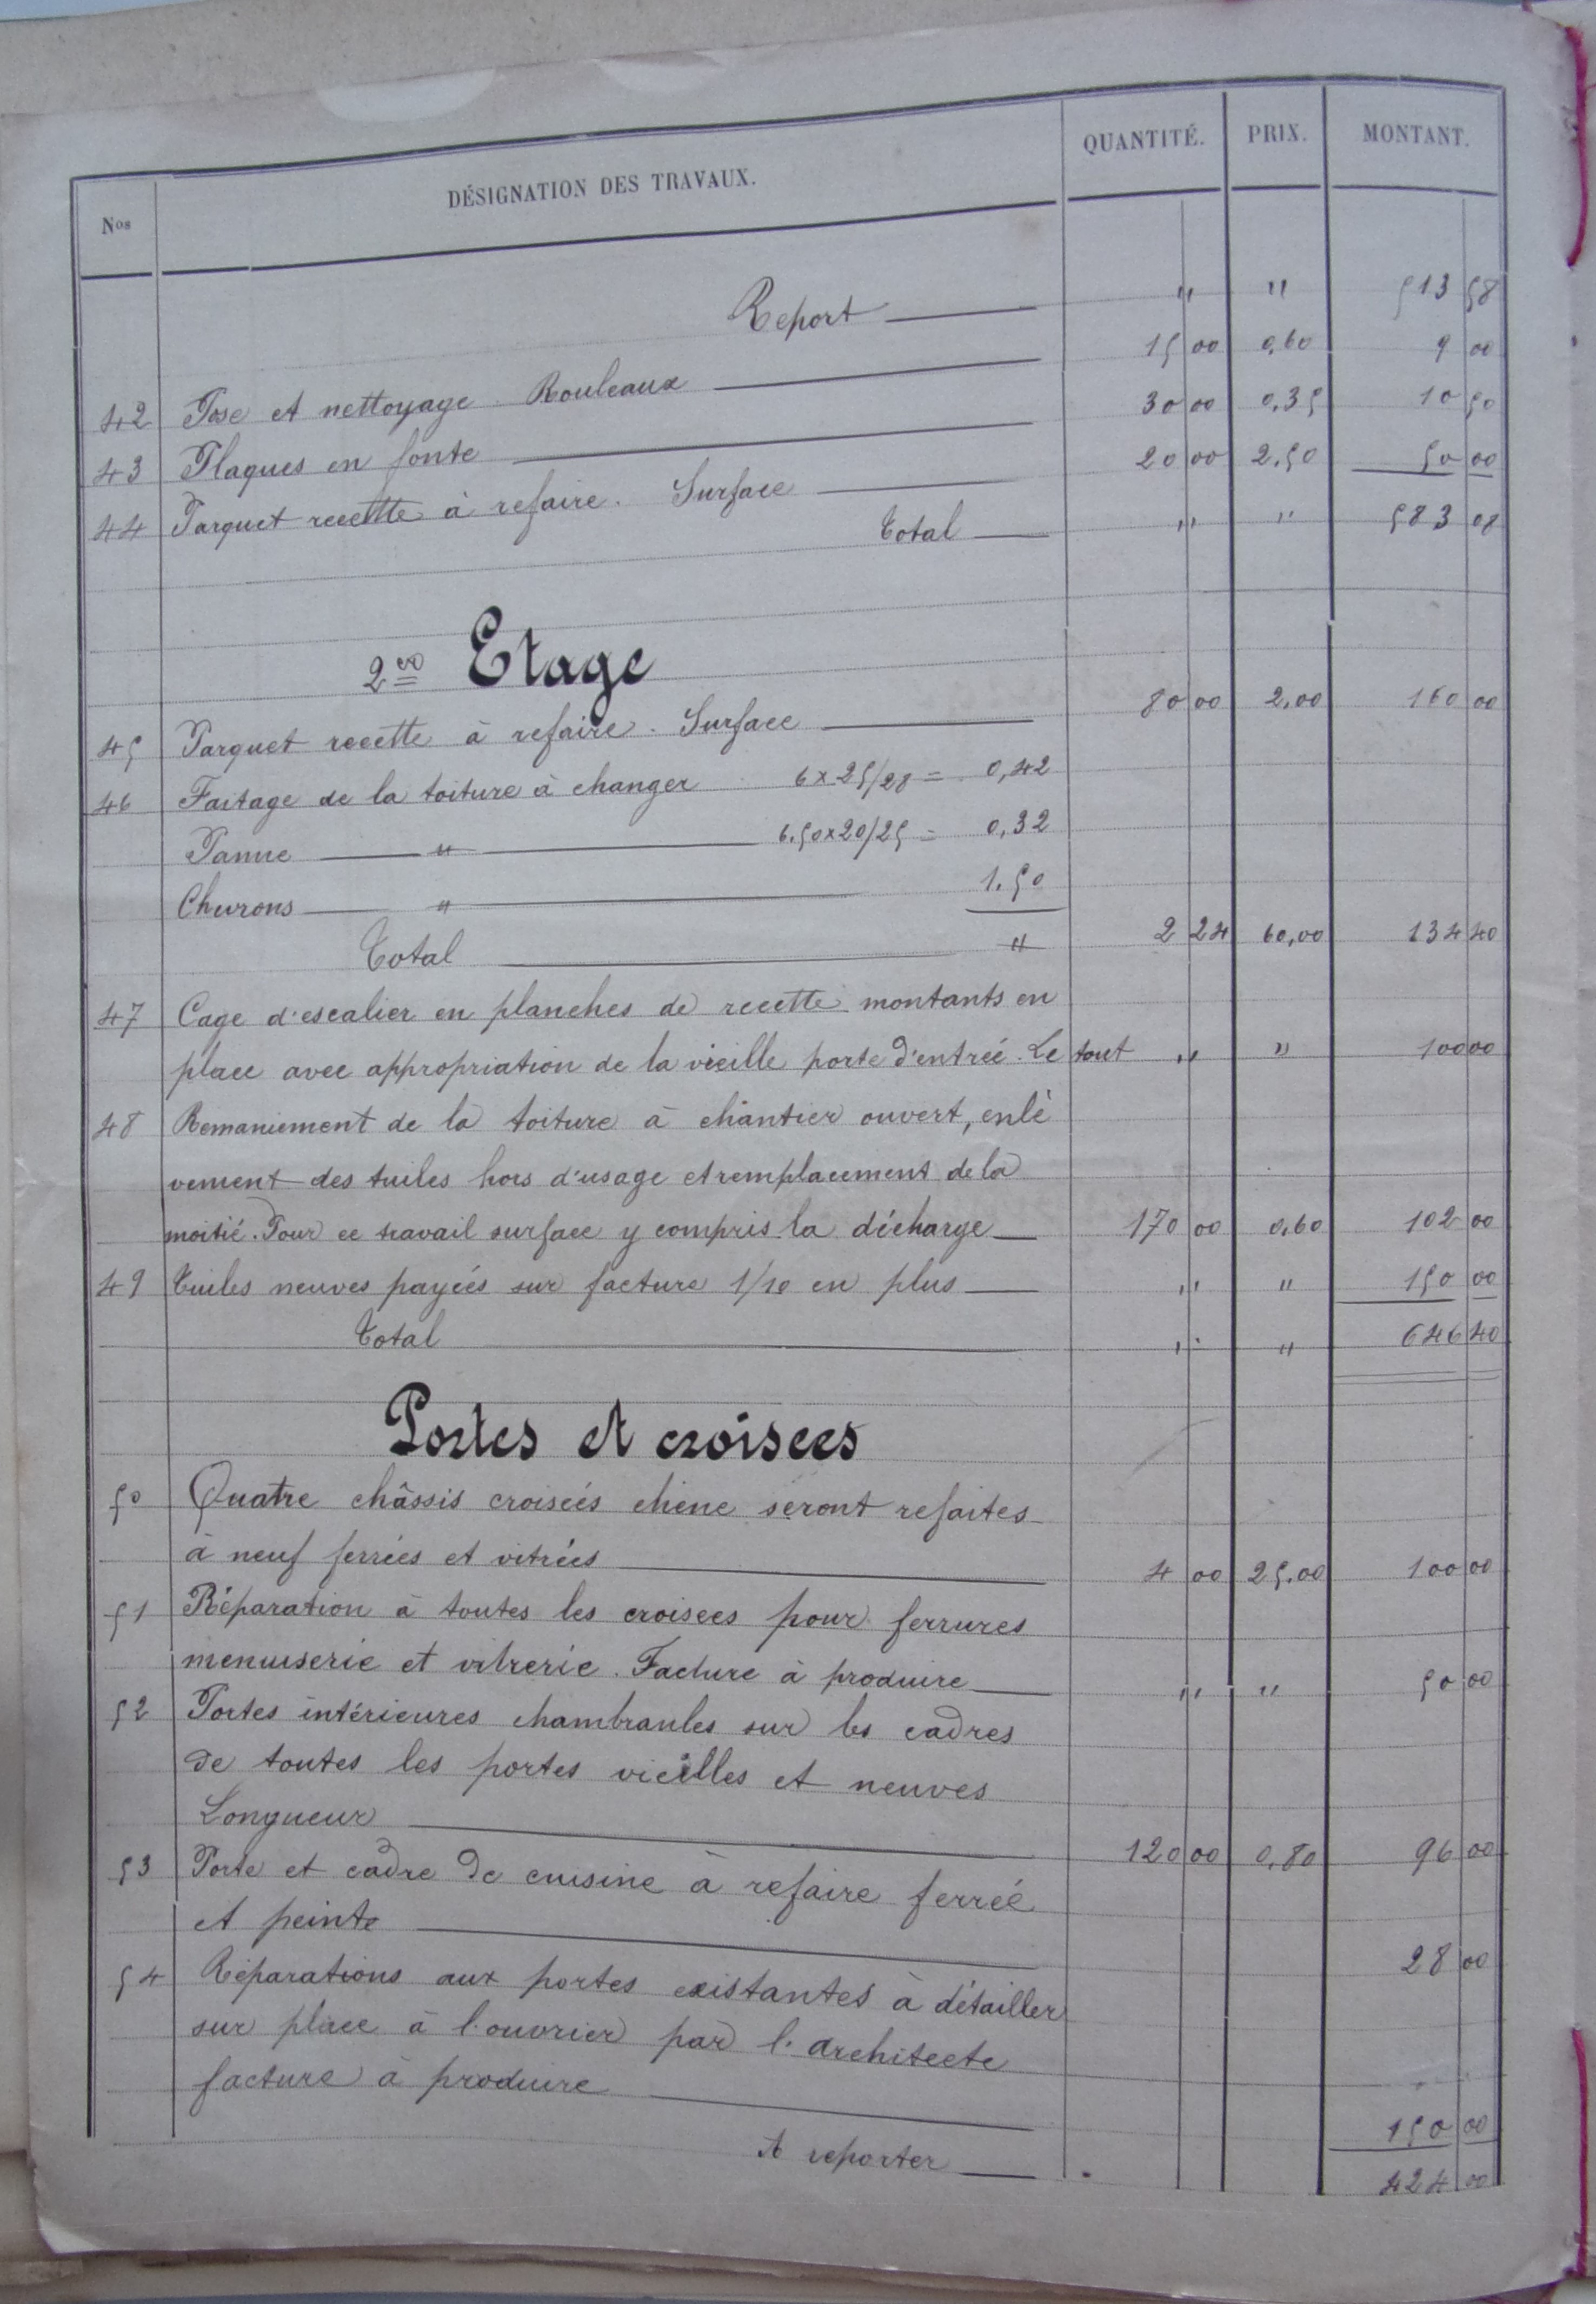 Nos DÉSIGNATION DES TRAVAUX. QUANTITÉ. PRIX. MONTANT.
Report " " 513 58
42 Pose et nettoyage. Rouleaux 15 00 0,60 9 00
43 Plaques en fonte 30 00 0,35 10 50
44 Parquet recette à refaire. Surface 20 00 2,50 50 00
Total " " 583 08
2eo Etage
45 Parquet recette à refaire. Surface 80 00 2,00 160 00
46 Faitage de la toiture à changer 6x25/28 = 0,42
Panne " 6.50x20/25 = 0,32
Chevrons " 1.50
Total " 2 24 60,00 134 40
47 Cage d'escalier en planches de recette montants en
place avec appropriation de la vieille porte d'entrée. Le tout " " 100 00
48 Remaniement de la toiture à chantier ouvert, enlè
vement des tuiles hors d'usage et remplacement de la
moitié. Pour ce travail surface y compris la décharge 170 00 0,60 102 00
49 Tuiles neuves payées sur facture 1/10 en plus " " 150 00
Total " " 646 40
Portes et croisees
50 Quatre châssis croisées chêne seront refaites
à neuf ferrées et vitrées 4 00 25.00 100 00
51 Réparation à toutes les croisees pour ferrures
menuiserie et vitrerie. Facture à produire " " 50 00
52 Portes intérieures chambranles sur les cadres
de toutes les portes vieilles et neuves
Longueur 120 00 0,80 96 00
53 Porte et cadre de cuisine à refaire ferrée
et peinte 28 00
54 Réparations aux portes existantes à détailler
sur place à l'ouvrier par l'architecte
facture à produire 150 00
A reporter 424 00